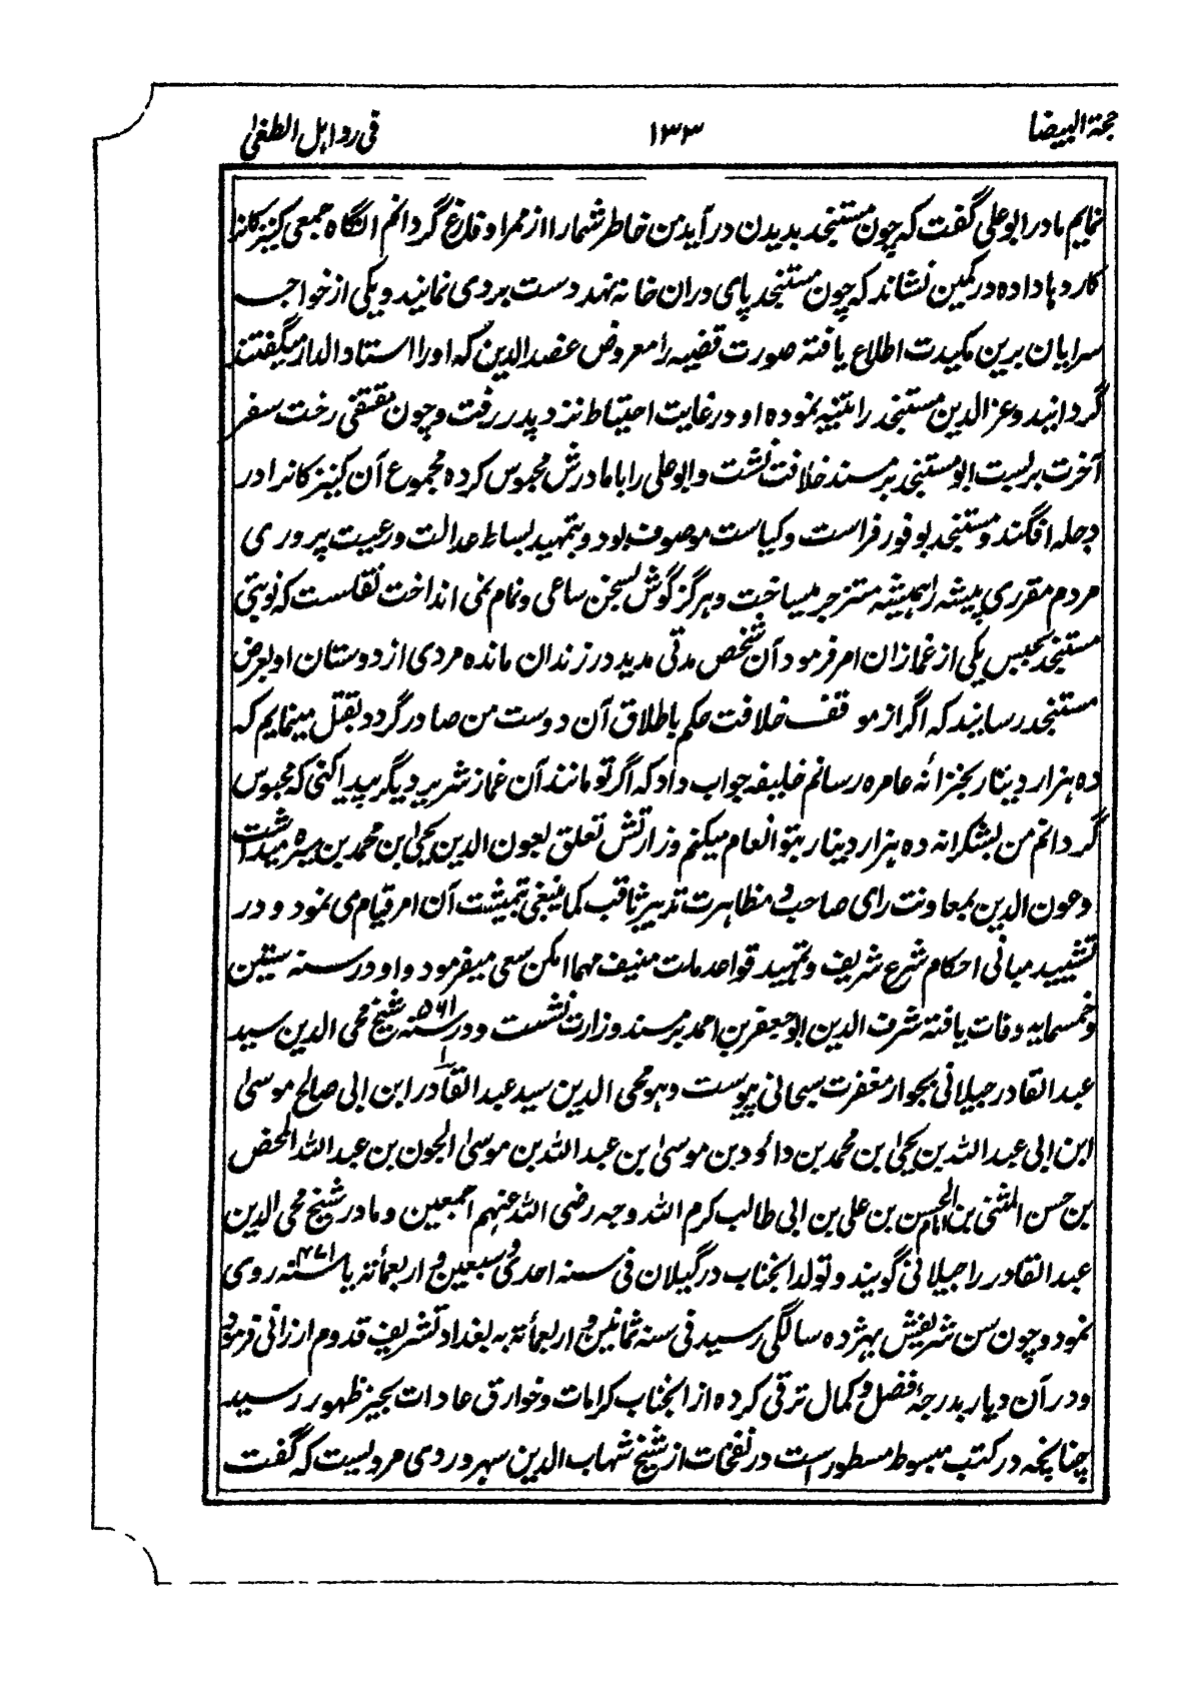 حجة البیضا ۱۳۳ فی رد اہل الطغیٰ
نمایم مادر ابو علی گفت کہ چون مستنجد بدیدن در آید من خاطر شما را از ممر او فارغ گردانم انگاہ جمعی کنیزکانرا
کارد ہا دادہ در کمین نشاند کہ چون مستنجد پای دران خانہ نہد دست بردی نمایند و یکی از خواجہ
سرایان برین مکیدت اطلاع یافتہ صورت قضیہ را معروض عضد الدین کہ او را استاد الدار میگفتند
گردانید و عز الدین مستنجد را تنبیہ نمودہ او در غایت احتیاط نزد پدر رفت و چون مقتفی رخت سفر
آخرت بر بست ابو مستنجد بر مسند خلافت نشست و ابو علی را با مادرش محبوس کردہ مجموع آن کنیزکانرا در
دجلہ افگند و مستنجد بوفور فراست و کیاست موصوف بود و بتمہید بساط عدالت و رعیت پروری
مردم مقرری پیشہ را ہمیشہ منزجر میساخت و ہرگز گوش بسخن ساعی و نمام نمی انداخت نقلست کہ نوبتی
مستنجد بحبس یکی از غمازان امر فرمود آن شخص مدتی مدید در زندان ماندہ مردی از دوستان او بعرض
مستنجد رسانید کہ اگر از موقف خلافت حکم باطلاق آن دوست من صادر گردد تقبل مینمایم کہ
دہ ہزار دینار بخزانۂ عامرہ رسانم خلیفہ جواب داد کہ اگر تو مانند آن غماز شریر دیگر پیدا کنی کہ محبوس
گردانم من بشکرانہ دہ ہزار دینار بتو انعام میکنم وزارتش تعلق بعون الدین یحیٰی بن محمد بن ہبیرہ میداشت
و عون الدین بمعاونت رای صاحب و مظاہرت تدبیر ثاقب کما ینبغی بتمشیت آن امر قیام می نمود و در
تشیید مبانی احکام شرع شریف و تمہید قواعد ملت منیف مہما امکن سعی میفرمود و او در سنہ ستین
و خمسمایہ وفات یافتہ شرف الدین ابو جعفر بن احمد بر مسند وزارت نشست و در سنہ ۵۶۱ شیخ محی الدین سید
عبد القادر جیلانی بجوار مغفرت سبحانی پیوست و ہو محی الدین سید عبد القادر ابن ابی صالح موسیٰ
ابن ابی عبد اللہ بن یحیٰی بن محمد بن داؤد بن موسیٰ بن عبد اللہ بن موسیٰ الجون بن عبد اللہ المحض
بن حسن المثنی بن امام الحسن بن علی بن ابی طالب کرم اللہ وجہہ رضی اللہ عنہم اجمعین و مادر شیخ محی الدین
عبد القادر را جیلانی گویند و تولد آنجناب در گیلان فی سنہ احدی و سبعین و اربعمأتہ یا سنہ ۴۷۱ روی
نمود و چون سن شریفش بہژدہ سالگی رسید فی سنہ ثمانین و اربعمأتہ بہ بغداد تشریف قدوم ارزانی فرمود
و در آن دیار بدرجۂ فضل و کمال ترقی کردہ از آنجناب کرامات و خوارق عادات بحیز ظہور رسید
چنانچہ در کتب مبسوط مسطور است در نفحات از شیخ شہاب الدین سہروردی مرویست کہ گفت